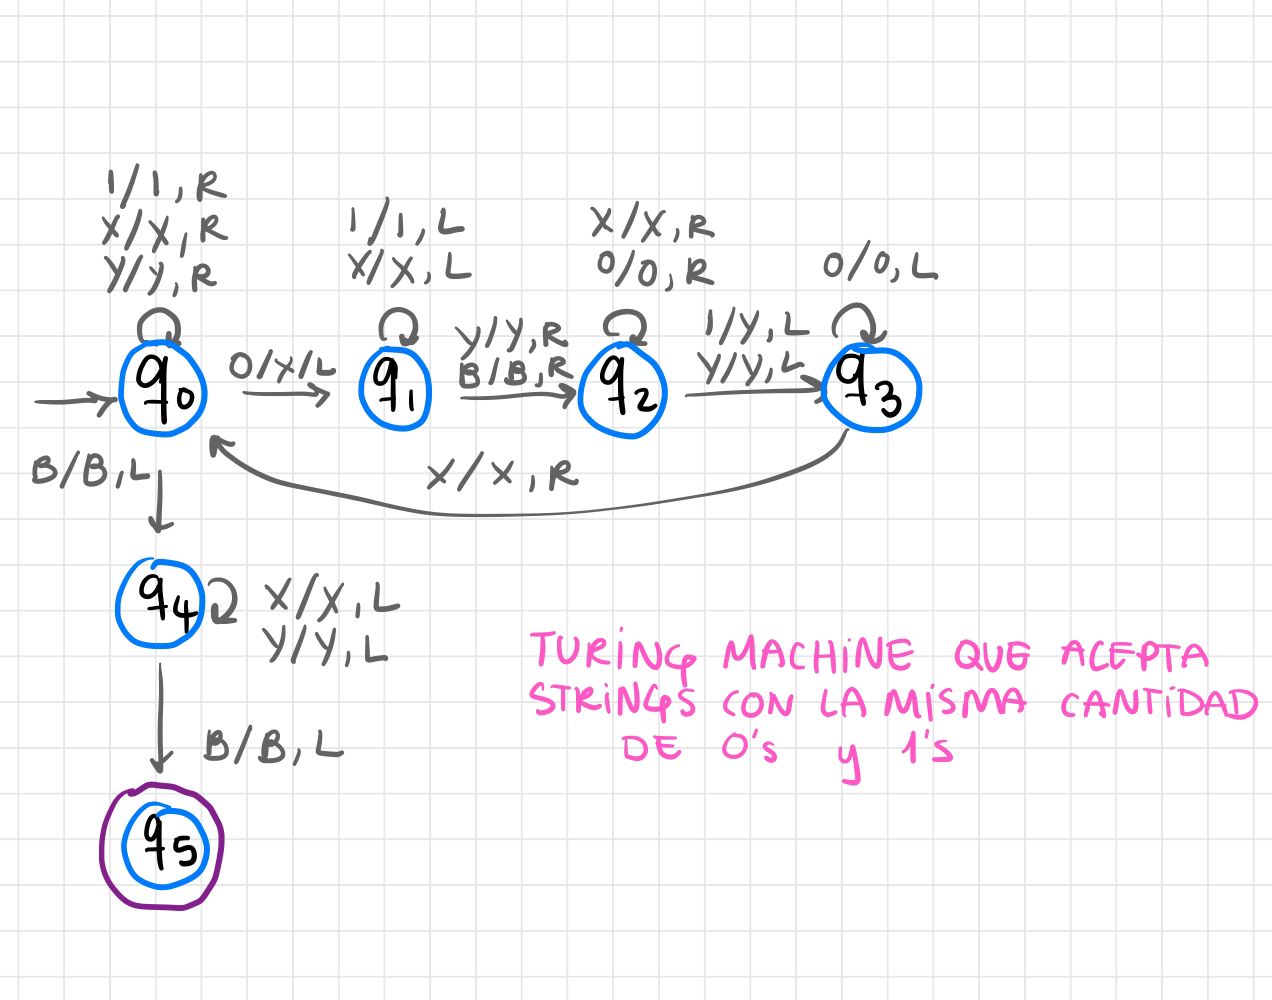 1/1, R
X/X, R
Y/Y, R
1/1, L
X/X, L
X/X, R
0/0, R
0/0, L
0/X/L
Y/Y, R
B/B, R
1/Y, L
Y/Y, L
q0
q1
q2
q3
B/B, L
X/X, R
q4
X/X, L
Y/Y, L
B/B, L
q5
TURING MACHINE QUE ACEPTA
STRINGS CON LA MISMA CANTIDAD
DE 0's y 1's